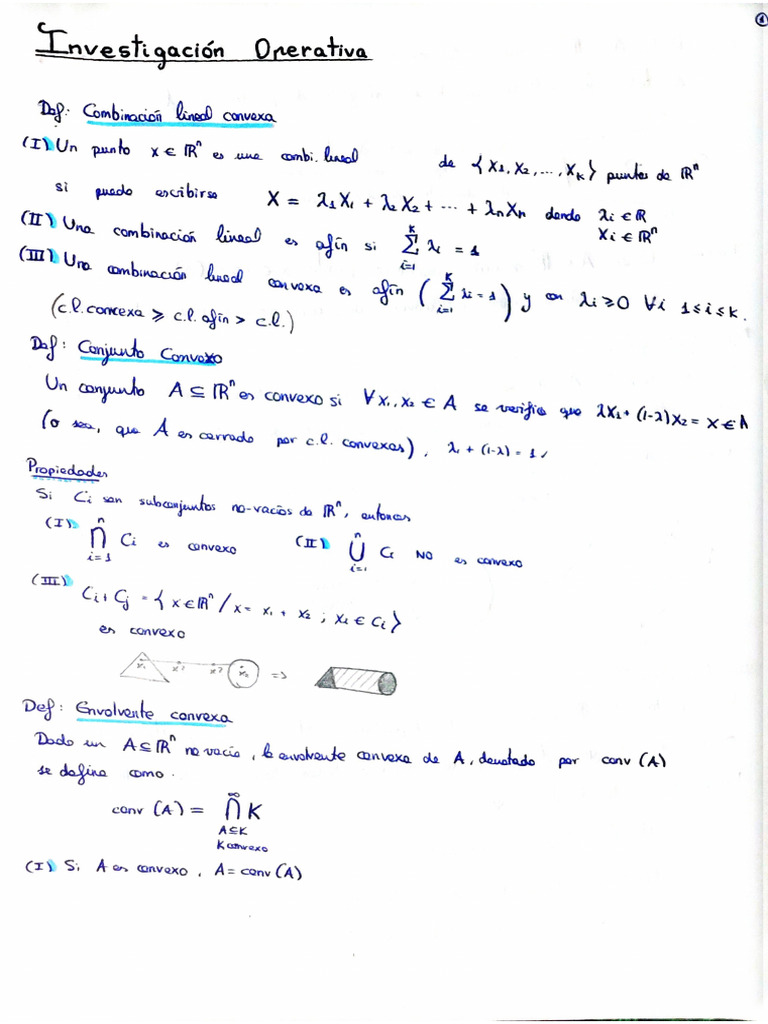 ①
Investigación Operativa
Def: Combinación lineal convexa
(I) Un punto x ∈ ℝⁿ es una combi. lineal de {x₁, x₂, ..., x_K} puntos de ℝⁿ
si puedo escribirse X = λ₁X₁ + λ₂X₂ + ... + λₙXₙ donde λi ∈ ℝ
Xi ∈ ℝⁿ
(II) Una combinación lineal es afín si ∑_{i=1}^{K} λi = 1
(III) Una combinación lineal convexa es afín (∑_{i=1}^{K} λi = 1) y con λi ≥ 0 ∀i 1≤i≤k.
(c.l. convexa ⩾ c.l. afín > c.l.)
Def: Conjunto Convexo
Un conjunto A ⊆ ℝⁿ es convexo si ∀x₁, x₂ ∈ A se verifica que λx₁ + (1-λ)x₂ = x ∈ A
(o sea, que A es cerrado por c.l. convexas), λ₁ + (1-λ) = 1
Propiedades
Si Ci son subconjuntos no-vacíos de ℝⁿ, entonces
(I) ⋂_{i=1}^{n} Ci es convexo (II) ⋃_{i=1}^{n} Ci NO es convexo
(III) Ci + Cj = {x ∈ ℝⁿ / x = x₁ + x₂ ; xi ∈ Ci}
es convexo
x₁ x? x? x₂ =>
Def: Envolvente convexa
Dado un A ⊆ ℝⁿ no vacío, la envolvente convexa de A, denotado por conv (A)
se define como.
conv (A) = ⋂^{∞}_{A⊆K, K convexo} K
(I) Si A es convexo, A = conv (A)